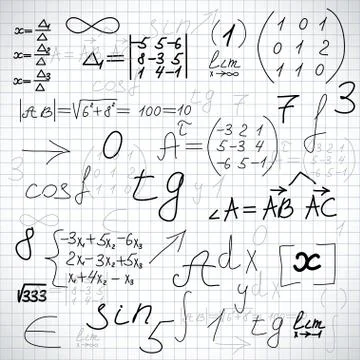 x = Δ₁/Δ
x = Δ₂/Δ
x = Δ₃/Δ
∞
Δ₁ = |-5 5 -6|
|8 -3 5|
|1 4 -1|
(1)
lim x→∞
(1 0 1)
(0 1 2)
(1 1 0)
|AB| = √6²+8² = 100 = 10
cosf
tg
7
f
3
→ 0
A^τ = (-3 2 1)
(5 -3 4)
(-6 5 -1)
cosf
tg
y 1
∠A = AB AC
8
{-3x₁ + 5x₂ - 6x₃
2x₁ - 3x₂ + 5x₃
x₁ + 4x₂ - x₃
A dx
[x]
√333
ydx
∈
lim x→∞
sin 5
∫ 1
tg
lim x→-1